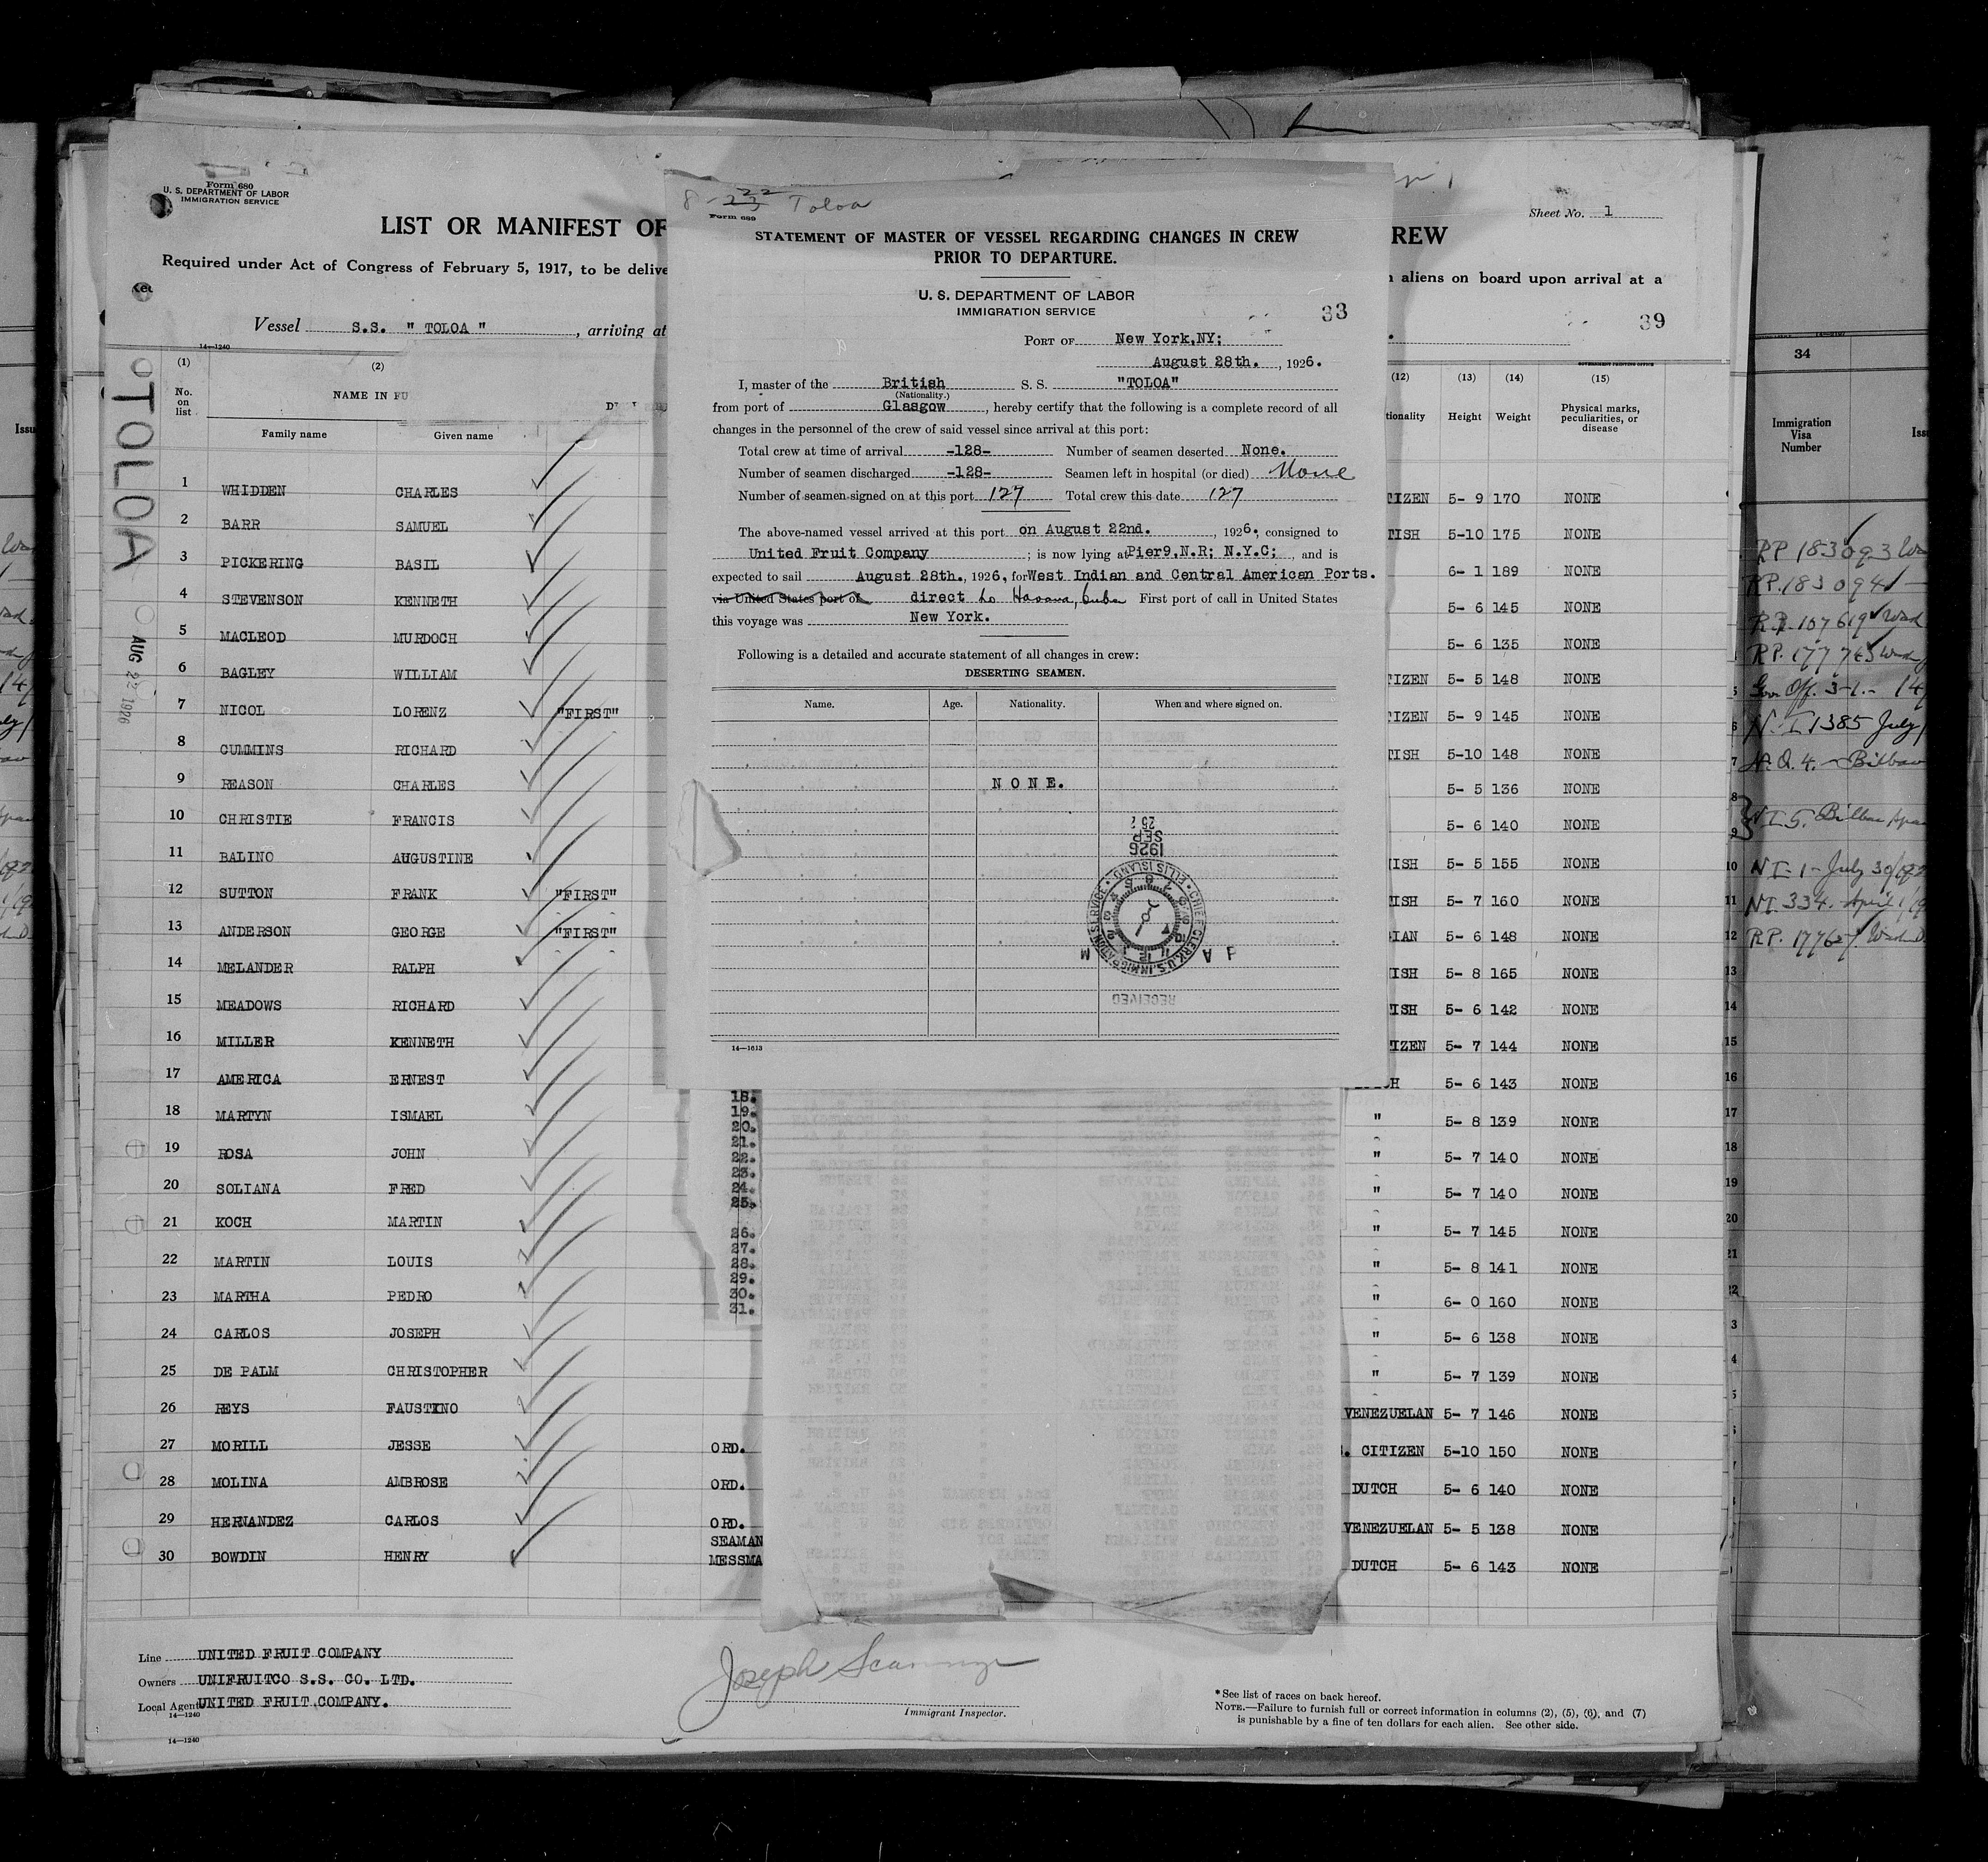 Form 680
U. S. DEPARTMENT OF LABOR
IMMIGRATION SERVICE
LIST OR MANIFEST OF
Required under Act of Congress of February 5, 1917, to be delive
Vessel S.S. " TOLOA " , arriving at
14—1240
TOLOA
AUG 22 1926
(1) (2)
No. on list
NAME IN FU
Family name Given name
1 WHIDDEN CHARLES
2 BARR SAMUEL
3 PICKERING BASIL
4 STEVENSON KENNETH
5 MACLEOD MURDOCH
6 BAGLEY WILLIAM
7 NICOL LORENZ "FIRST"
8 CUMMINS RICHARD
9 REASON CHARLES
10 CHRISTIE FRANCIS
11 BALINO AUGUSTINE
12 SUTTON FRANK "FIRST"
13 ANDERSON GEORGE "FIRST"
14 MELANDER RALPH
15 MEADOWS RICHARD
16 MILLER KENNETH
17 AMERICA ERNEST
18 MARTYN ISMAEL
19 ROSA JOHN
20 SOLIANA FRED
21 KOCH MARTIN
22 MARTIN LOUIS
23 MARTHA PEDRO
24 CARLOS JOSEPH
25 DE PALM CHRISTOPHER
26 REYS FAUSTINO
27 MORILL JESSE ORD.
28 MOLINA AMBROSE ORD.
29 HERNANDEZ CARLOS ORD.
SEAMAN
30 BOWDIN HENRY MESSMA
Line UNITED FRUIT COMPANY
Owners UNIFRUITCO S.S. CO. LTD.
Local Agent UNITED FRUIT COMPANY.
14—1240
14—1240
8-22 Toloa
Form 689
STATEMENT OF MASTER OF VESSEL REGARDING CHANGES IN CREW
PRIOR TO DEPARTURE.
U. S. DEPARTMENT OF LABOR
IMMIGRATION SERVICE
33
PORT OF New York,NY;
August 28th. , 1926.
I, master of the British S. S. "TOLOA"
(Nationality.)
from port of Glasgow , hereby certify that the following is a complete record of all
changes in the personnel of the crew of said vessel since arrival at this port:
Total crew at time of arrival -128- Number of seamen deserted None.
Number of seamen discharged -128- Seamen left in hospital (or died) None
Number of seamen signed on at this port 127 Total crew this date 127
The above-named vessel arrived at this port on August 22nd. , 1926, consigned to
United Fruit Company ; is now lying at Pier9,N.R; N.Y.C; , and is
expected to sail August 28th., 1926, for West Indian and Central American Ports.
via United States port of direct to Havana, Cuba First port of call in United States
this voyage was New York.
Following is a detailed and accurate statement of all changes in crew:
DESERTING SEAMEN.
Name. Age. Nationality. When and where signed on.
NONE.
1926
SEP
25
CHIEF CLERK, U.S. IMMIGRATION SERVICE • ELLIS ISLAND
A M
RECEIVED
14—1613
18.
19.
20.
21.
22.
23.
24.
25.
26.
27.
28.
29.
30.
31.
Joseph
Immigrant Inspector.
REW
Sheet No. 1
aliens on board upon arrival at a
39
GOVERNMENT PRINTING OFFICE
(12) (13) (14) (15)
tionality Height Weight Physical marks, peculiarities, or disease
TIZEN 5- 9 170 NONE
TISH 5-10 175 NONE
6- 1 189 NONE
5- 6 145 NONE
5- 6 135 NONE
TIZEN 5- 5 148 NONE
TIZEN 5- 9 145 NONE
TISH 5-10 148 NONE
5- 5 136 NONE
5- 6 140 NONE
ISH 5- 5 155 NONE
ISH 5- 7 160 NONE
IAN 5- 6 148 NONE
ISH 5- 8 165 NONE
ISH 5- 6 142 NONE
IZEN 5- 7 144 NONE
H 5- 6 143 NONE
" 5- 8 139 NONE
" 5- 7 140 NONE
" 5- 7 140 NONE
" 5- 7 145 NONE
" 5- 8 141 NONE
" 6- 0 160 NONE
" 5- 6 138 NONE
" 5- 7 139 NONE
VENEZUELAN 5- 7 146 NONE
. CITIZEN 5-10 150 NONE
DUTCH 5- 6 140 NONE
VENEZUELAN 5- 5 138 NONE
DUTCH 5- 6 143 NONE
* See list of races on back hereof.
NOTE.—Failure to furnish full or correct information in columns (2), (5), (6), and (7)
is punishable by a fine of ten dollars for each alien. See other side.
34
Immigration
Visa
Number
Iss
RP 183093
RP. 183094
RP. 107619 Wash
RP. 177745
Gov Off. 3-1.-
N.I 1385 July
H.Q. 4. - Bilbao
NI 5. Bilbao
NI-1- July 30
NI. 334. April
RP. 17762